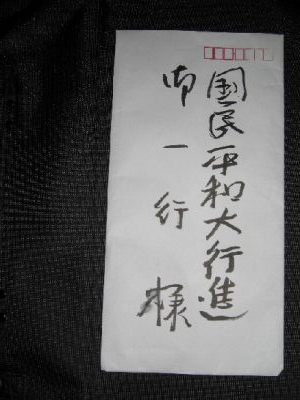 国民平和大行進
御一行様